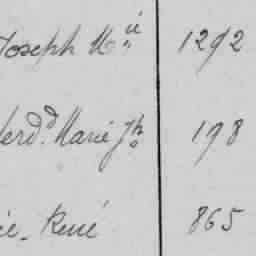 Joseph M^ie 1292
ferd^d. Marie J^h 198
ée René 865